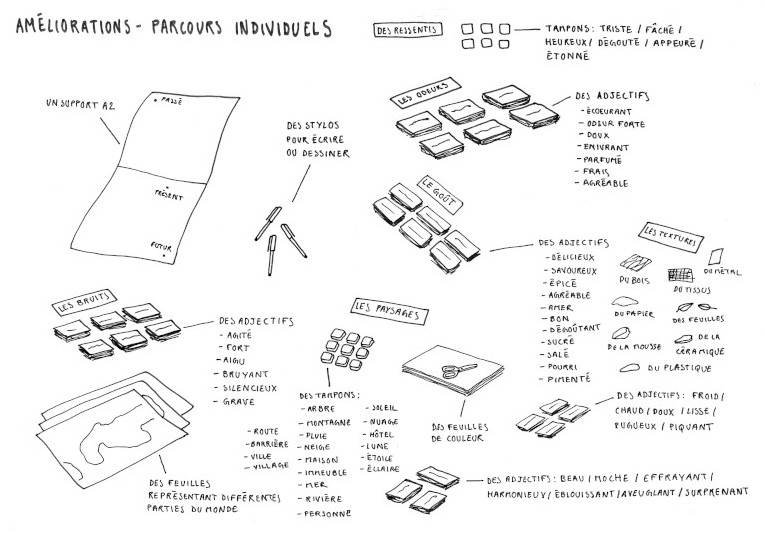 AMÉLIORATIONS - PARCOURS INDIVIDUELS
DES RESSENTIS
TAMPONS : TRISTE / FÂCHÉ /
HEUREUX / DÉGOUTÉ / APPEURÉ /
ÉTONNÉ
UN SUPPORT A2
PASSÉ
PRÉSENT
FUTUR
DES STYLOS
POUR ÉCRIRE
OU DESSINER
LES ODEURS
DES ADJECTIFS
- ÉCOEURANT
- ODEUR FORTE
- DOUX
- ENIVRANT
- PARFUMÉ
- FRAIS
- AGRÉABLE
LE GOÛT
DES ADJECTIFS
- DÉLICIEUX
- SAVOUREUX
- ÉPICÉ
- AGRÉABLE
- AMER
- BON
- DÉGOÛTANT
- SUCRÉ
- SALÉ
- POURRI
- PIMENTÉ
LES TEXTURES
DU BOIS
DU TISSUS
DU MÉTAL
DU PAPIER
DES FEUILLES
DE LA MOUSSE
DE LA
CÉRAMIQUE
DU PLASTIQUE
DES ADJECTIFS : FROID /
CHAUD / DOUX / LISSE /
RUGUEUX / PIQUANT
LES BRUITS
DES ADJECTIFS
- AGITÉ
- FORT
- AIGU
- BRUYANT
- SILENCIEUX
- GRAVE
LES PAYSAGES
DES TAMPONS :
- ARBRE
- MONTAGNE
- PLUIE
- NEIGE
- MAISON
- IMMEUBLE
- MER
- RIVIÈRE
- PERSONNE
- SOLEIL
- NUAGE
- HÔTEL
- LUNE
- ÉTOILE
- ÉCLAIRE
- ROUTE
- BARRIÈRE
- VILLE
- VILLAGE
DES FEUILLES
DE COULEUR
DES FEUILLES
REPRÉSENTANT DIFFÉRENTES
PARTIES DU MONDE
DES ADJECTIFS : BEAU / MOCHE / EFFRAYANT /
HARMONIEUX / ÉBLOUISSANT / AVEUGLANT / SURPRENANT